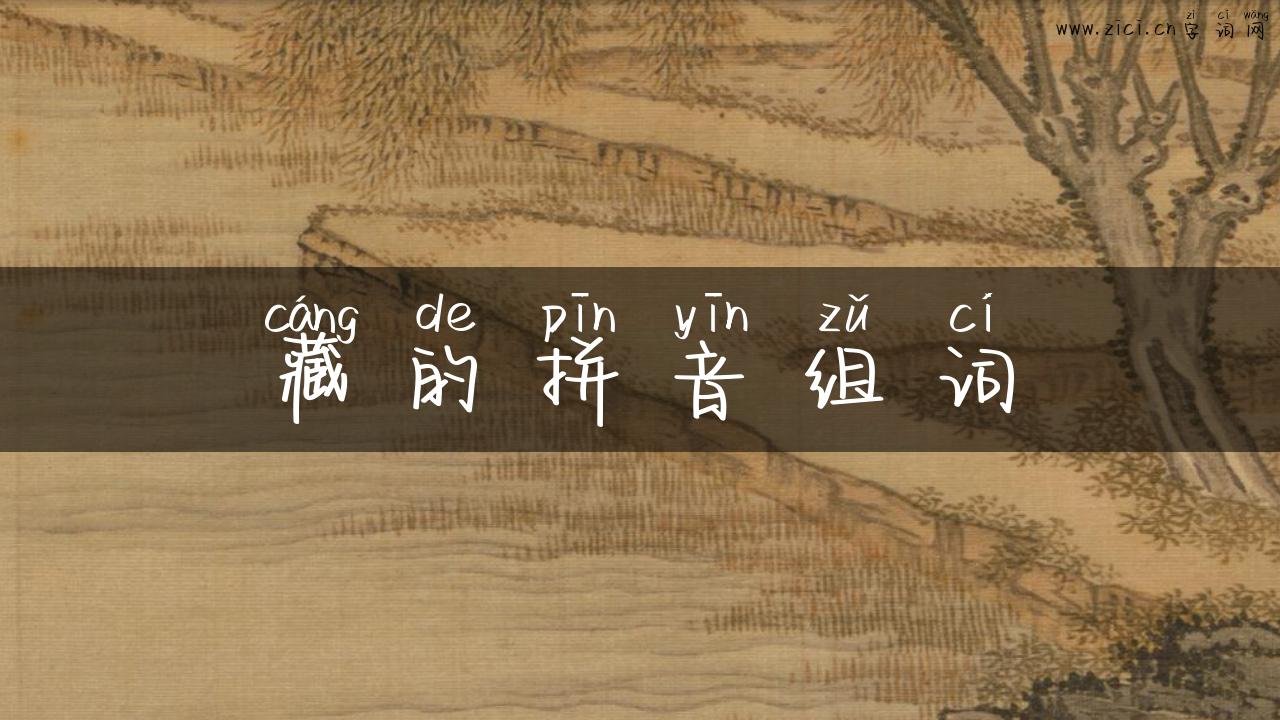 zì cí wǎng
www.zici.cn字词网
cáng de pīn yīn zǔ cí
藏的拼音组词